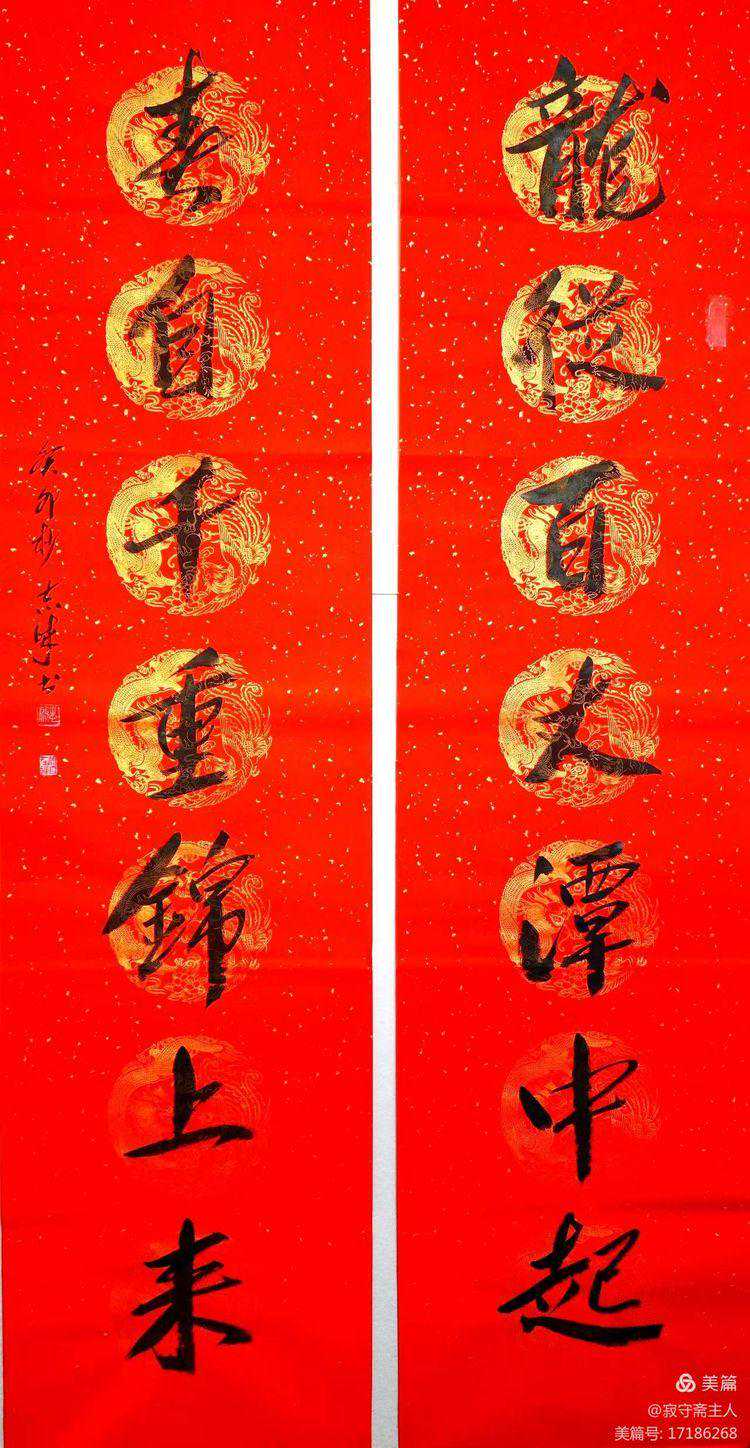 龍從百丈潭中起
春自千重錦上来
癸卯
书
美篇
@寂守斋主人
美篇号: 17186268